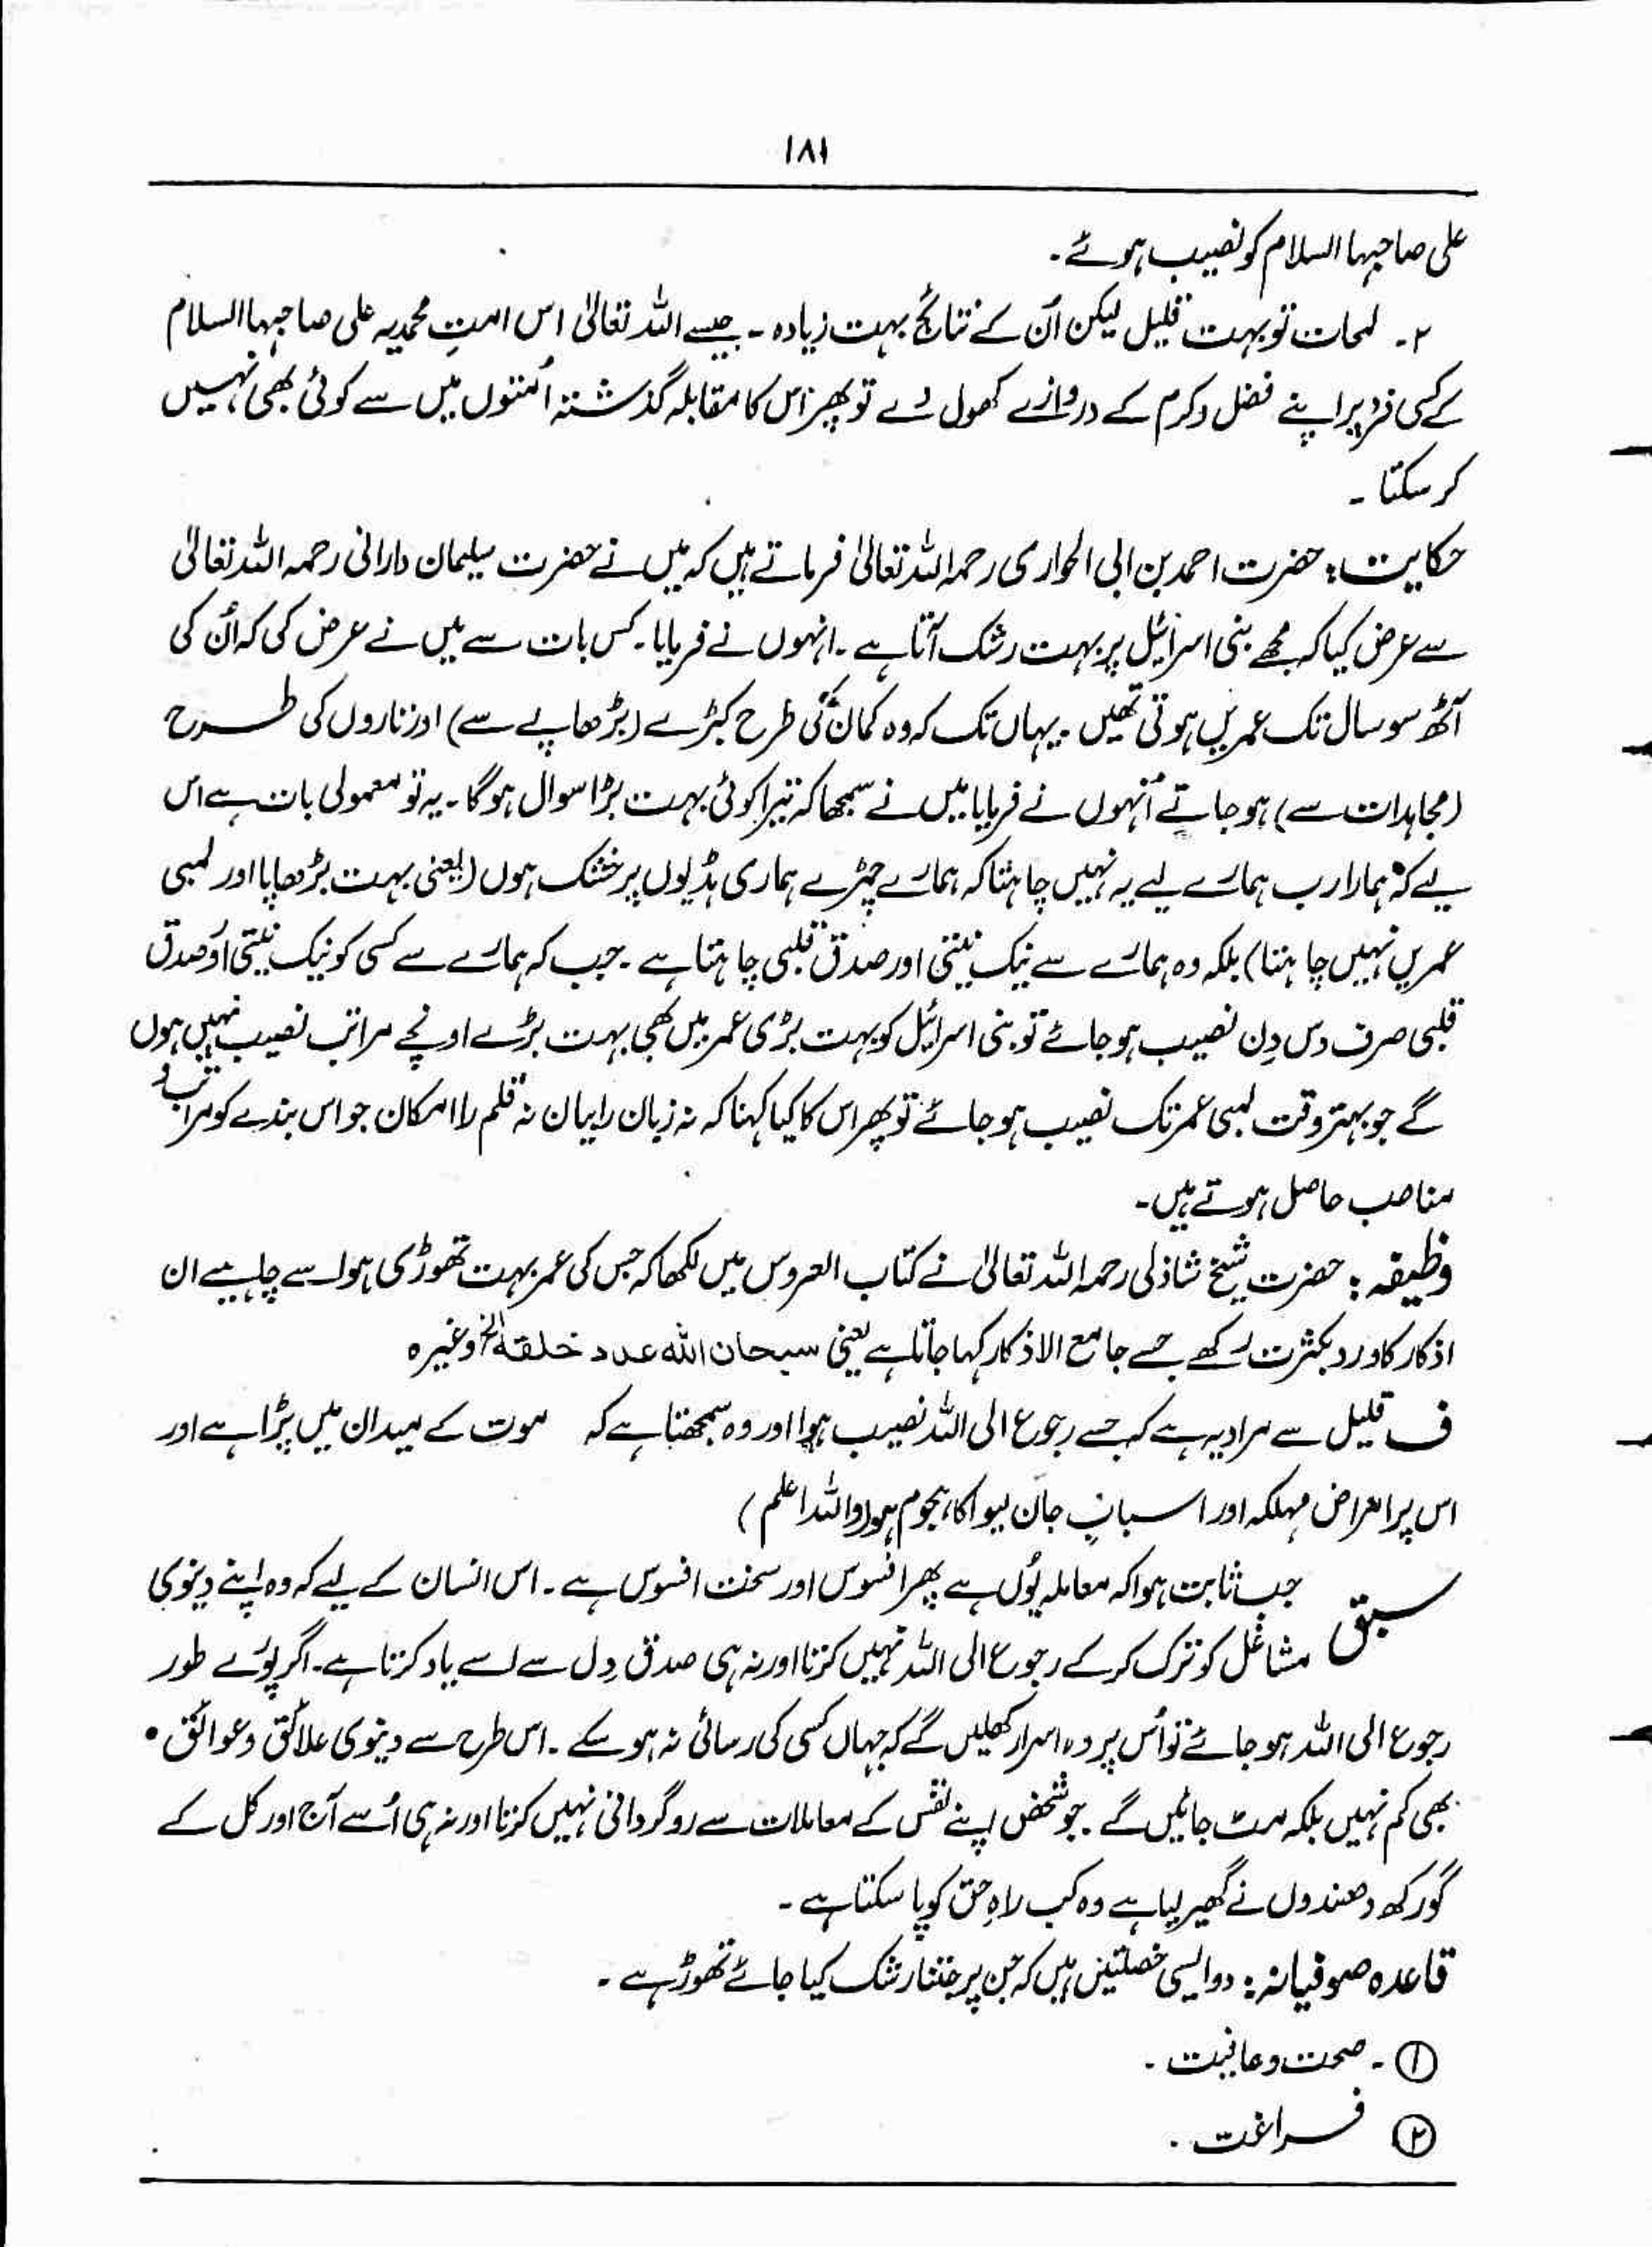 ۱۸۱
علی صاحبہا السلام کو نصیب ہوئے۔
۲۔ لمحات تو بہت قلیل لیکن اُن کے نتائج بہت زیادہ ۔ جیسے اللہ تعالیٰ اس امتِ محمدیہ علی صاحبہا السلام
کے کسی فرد پر اپنے فضل وکرم کے دروازے کھول دے تو پھر اس کا مقابلہ گذشتہ اُمتوں میں سے کوئی بھی نہیں
کر سکتا ۔
حکایت: حضرت احمد بن ابی الحواری رحمہ اللہ تعالیٰ فرماتے ہیں کہ میں نے حضرت سلیمان دارانی رحمہ اللہ تعالیٰ
سے عرض کیا کہ مجھے بنی اسرائیل پر بہت رشک آتا ہے ۔ انہوں نے فرمایا ۔ کس بات سے میں نے عرض کی کہ اُن کی
آٹھ سو سال تک عمریں ہوتی تھیں ۔ یہاں تک کہ وہ کمان کی طرح کبڑے (بڑھاپے سے) اور تاروں کی طرح
(مجاہدات سے) ہو جاتے اُنہوں نے فرمایا میں نے سمجھا کہ تیرا کوئی بہت بڑا سوال ہوگا ۔ یہ تو معمولی بات ہے اس
لیے کہ ہمارا رب ہمارے لیے یہ نہیں چاہتا کہ ہمارے چمڑے ہماری ہڈیوں پر خشک ہوں (یعنی بہت بڑھاپا اور لمبی
عمریں نہیں چاہتا) بلکہ وہ ہمارے سے نیک نیتی اور صدق قلبی چاہتا ہے ۔ جب کہ ہمارے سے کسی کو نیک نیتی اور صدق
قلبی صرف دس دِن نصیب ہو جائے تو بنی اسرائیل کو بہت بڑی عمر میں بھی بہت بڑے اونچے مراتب نصیب نہیں ہوں
گے جو بہتر وقت لمبی عمر تک نصیب ہو جائے تو پھر اس کا کیا کہنا کہ نہ زبان را بیان نہ قلم را امکان جو اس بندے کو مراتب و
مناصب حاصل ہوتے ہیں۔
وظیفہ : حضرت شیخ شاذلی رحمہ اللہ تعالیٰ نے کتاب العروس میں لکھا کہ جس کی عمر بہت تھوڑی ہو اسے چاہیے ان
اذکار کا ورد بکثرت رکھے جسے جامع الاذکار کہا جاتا ہے یعنی سبحان اللہ عدد خلقہ الخ وغیرہ
ف قلیل سے مراد یہ ہے کہ جسے رجوع الی اللہ نصیب ہوا اور وہ سمجھتا ہے کہ موت کے میدان میں پڑا ہے اور
اس پر امراض مہلکہ اور اسبابِ جان لیوا کا ہجوم ہو (واللہ اعلم)
سبق جب ثابت ہوا کہ معاملہ یُوں ہے پھر افسوس اور سخت افسوس ہے ۔ اس انسان کے لیے کہ وہ اپنے دنیوی
مشاغل کو ترک کر کے رجوع الی اللہ نہیں کرتا اور نہ ہی صدق دِل سے اسے یاد کرتا ہے ۔ اگر پورے طور
رجوع الی اللہ ہو جائے تو اُس پر وہ اسرار کھلیں گے کہ جہاں کسی کی رسائی نہ ہو سکے ۔ اس طرح سے دنیوی علائق وعوائق
بھی کم نہیں بلکہ مٹ جائیں گے ۔ جو شخص اپنے نفس کے معاملات سے روگردانی نہیں کرتا اور نہ ہی اُسے آج اور کل کے
گورکھ دھندوں نے گھیر لیا ہے وہ کب راہِ حق کو پا سکتا ہے ۔
قاعدہ صوفیانہ : دو ایسی خصلتیں ہیں کہ جن پر جتنا رشک کیا جائے تھوڑا ہے ۔
① ۔ صحت وعافیت ۔
② فراغت ۔